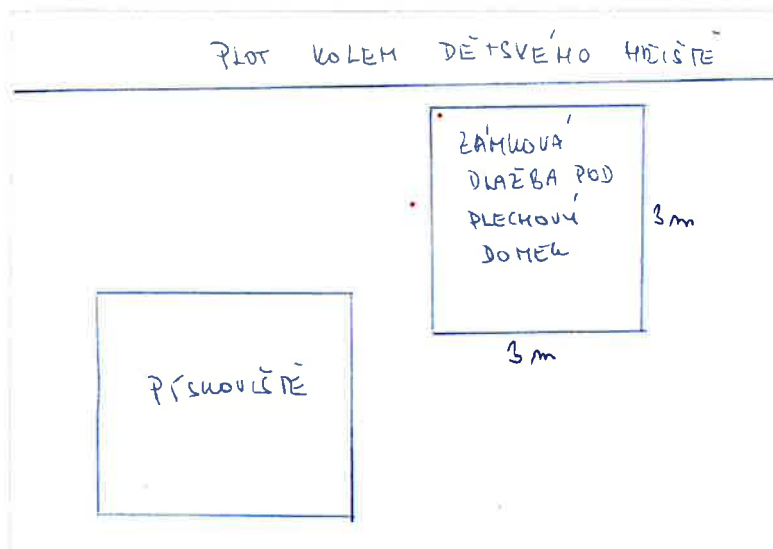 PLOT KOLEM DĚTSVÉHO HŘIŠTĚ
ZÁMKOVÁ
DLAŽBA POD
PLECHOVÝ
DOMEK
3 m
3 m
PÍSKOVIŠTĚ